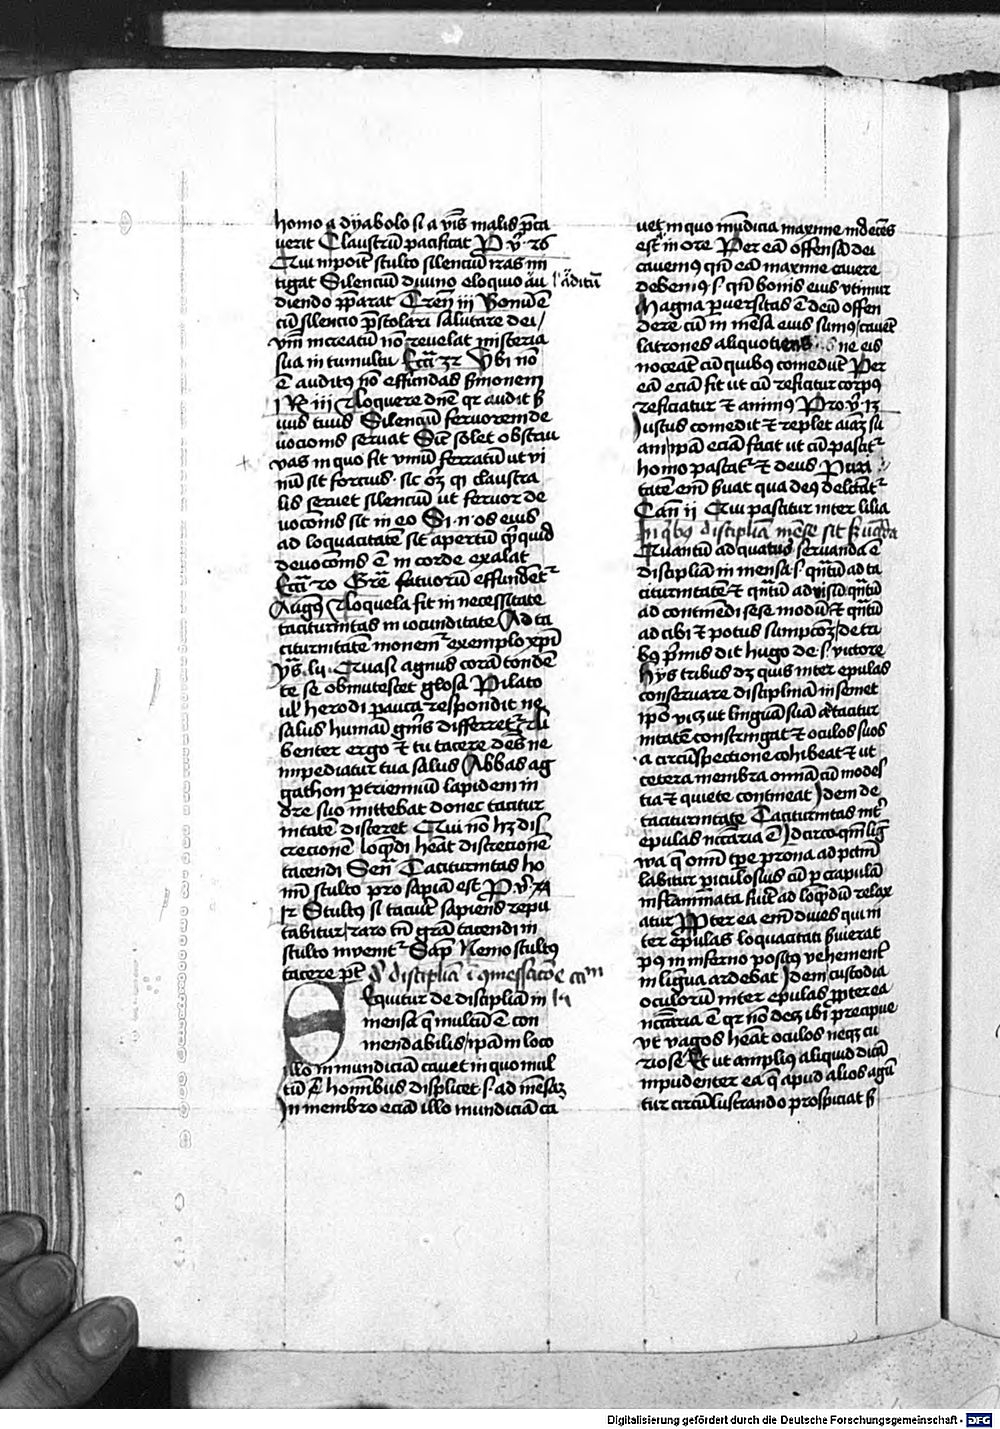 homo a dyabolo si a v̄is malis p̄ca
uerit Claustrū pacificat P v̄ 26
Qui inpoīt stulto silenciū iras mi
tigat Silenciū diuino eloquio au
l' aditū
diendo p̄parat Tren̄ iii Bonū ē
cū silencio p̄stolari salutare dei /
vim increatū nō reuelat misteria
sua in tumultu Ecc̄i 32 Vbi nō
ē auditꝰ nō effundas s̄monem
i R iii Loquere dn̄e qr audit s̄
uus tuus Silenciū feruorem de
uocionis seruat Sic̄ solet obstru
vas in quo fit vinū ferratū ut vi
nū sit forcius · sic oꝫ qi claustra
lis seruet silenciū ut feruor de
uocōnis sit in eo Si · n · os eius
ad loquacitatē sit apertū q̄cquid
deuocōnis ē in corde exalat
Ecc̄i 20 Gr̄e fatuorū effundent᷑
Augꝰ Loquela fit in necessitate
taciturnitas in iocunditate Ad ta
citurnitatē monem᷑ exemplo xp̄i
ys̄ · liii · Quasi agnus corā tondē
te se obmutescet glosa Pilato
ul' herodi pauca respondit ne
salus humāi gn̄is differret᷑ li
benter ergo ⁊ tu tacere des̄ ne
impediatur tua salus Abbas ag
gathon p trienniū lapidem in
ore suo mittebat donec tacitur
nitatē disceret Qui nō hꝫ dis
crecionē loq̄ndi heat discrecionē
tacendi Sen̄ Taciturnitas ho
mī stulto pro sapiā est P v̄
Stultus si tacu͛it sapiens repu
tabitur / raro tn̄ grā tacendi in
stulto inuenit᷑ Sap̄ Nemo stultus
tacere pt̄ de disciplīa ī qmessacōe
Equitur de disciplīa in
mensa q̄ multū ē con
mendabilis / ipā in loco
illo inmundiciā cauet in quo mul
tū ē hominibus displicet · s · ad mēsaꝫ
In membro eciā illo mundiciā ca
uet in quo īmūdicia maxime indecēs
est · in ore Per eā offensā dei
cauemꝰ qn̄ eā maxime cauere
debemꝰ · s · qn̄ bonis eius vtimur
Magna puersitas ē deū offen
dere cū in mēsa eius sumꝰ / cauet
latrones aliquotiens · ne eis
noceāt cū quibꝰ comedūt Per
eā eciā fit ut cū reficitur corpꝰ
reficiatur ⁊ animꝰ Pro v̄ 13
Iustus comedit ⁊ replet aiaꝫ su
am / ipā eciā facit ut cū pascit᷑
homo pascat᷑ ⁊ deus Puri
tatē em̄ s̄uat qua deꝰ delc̄tat᷑
Can̄ ii Qui pascitur inter lilia
In q̄bꝰ disciplīa mēse sit s̄uāda
Quantū ad quatuor seruanda ē
disciplīa in mensa · s · qn̄tū ad ta
citurnitatē ⁊ qn̄tū ad visū qn̄tū
ad continendi sese modū ⁊ qn̄tū
ad cibi ⁊ potus sumpcōꝫ / de tri
bꝰ p̄mis dic̄t hugo de · s · victore
Hys tribus dꝫ quis inter epulas
conseruare disciplinā in semet
ipō viꝫ ut linguā suā a tacitur
nitatē constringat ⁊ oculos suos
a circūspectione cohibeat ⁊ ut
cetera membra omnia cū modes
tia ⁊ quiete contineat Idem de
taciturnitate Taciturnitas int̄
epulas nc̄c̄aria ē Idcirco qm̄ liḡ
wa q̄ omī tp̄e prona ad pctm̄
labitur piculosius cū p crapulā
inflammata fu͛it ad loq̄ndū relax
atur Ppter ea em̄ diues qui in
ter epulas loquacitati s̄uierat
pꝰ in inferno positꝰ vehement᷑
in ligua ardebat Idem custodia
oculorū inter epulas ppterea
nc̄c̄aria ē qr nō decꝫ ibi p̄reapue
vt vagos heāt oculos neqꝫ cu
riose Et ut ampliꝰ aliquid dicā
inpudenter ea q̄ apud alios agū
tur circūlustrando prospiciat s̄
Digitalisierung gefördert durch die Deutsche Forschungsgemeinschaft - DFG